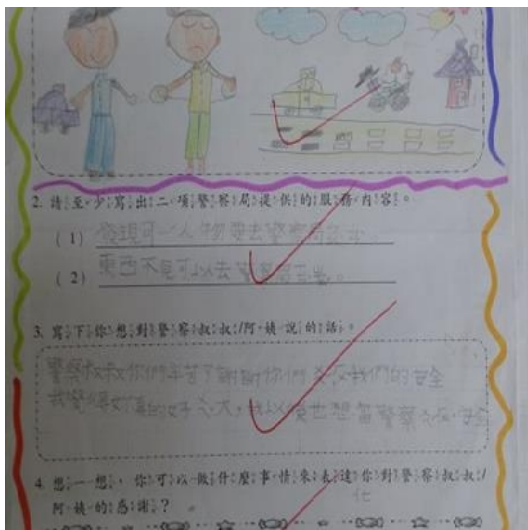 2. 請至少寫出二項警察局提供的服務內容。
(1) 發現可人物要去警察局
(2) 東西不見可以去警察局
3. 寫下你想對警察叔叔/阿姨說的話。
警察叔叔你們辛苦了謝謝你們 我們的安全
我覺得你真的好 大,我以後也想當警察 安全
4. 想一想,你可以做什麼事情來表達你對警察叔叔/
阿姨的感謝?